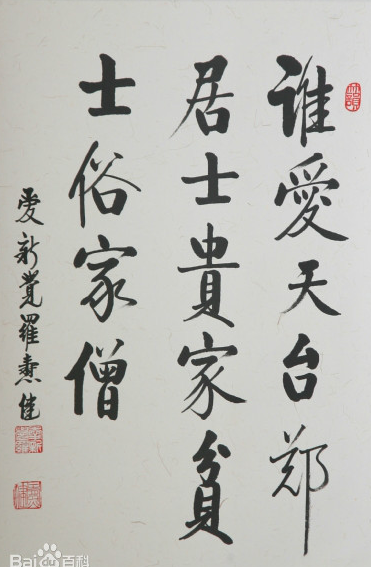 谁愛天台郑
居士貴家貧
士俗家僧
愛新覺羅燾佳
Baidu百科